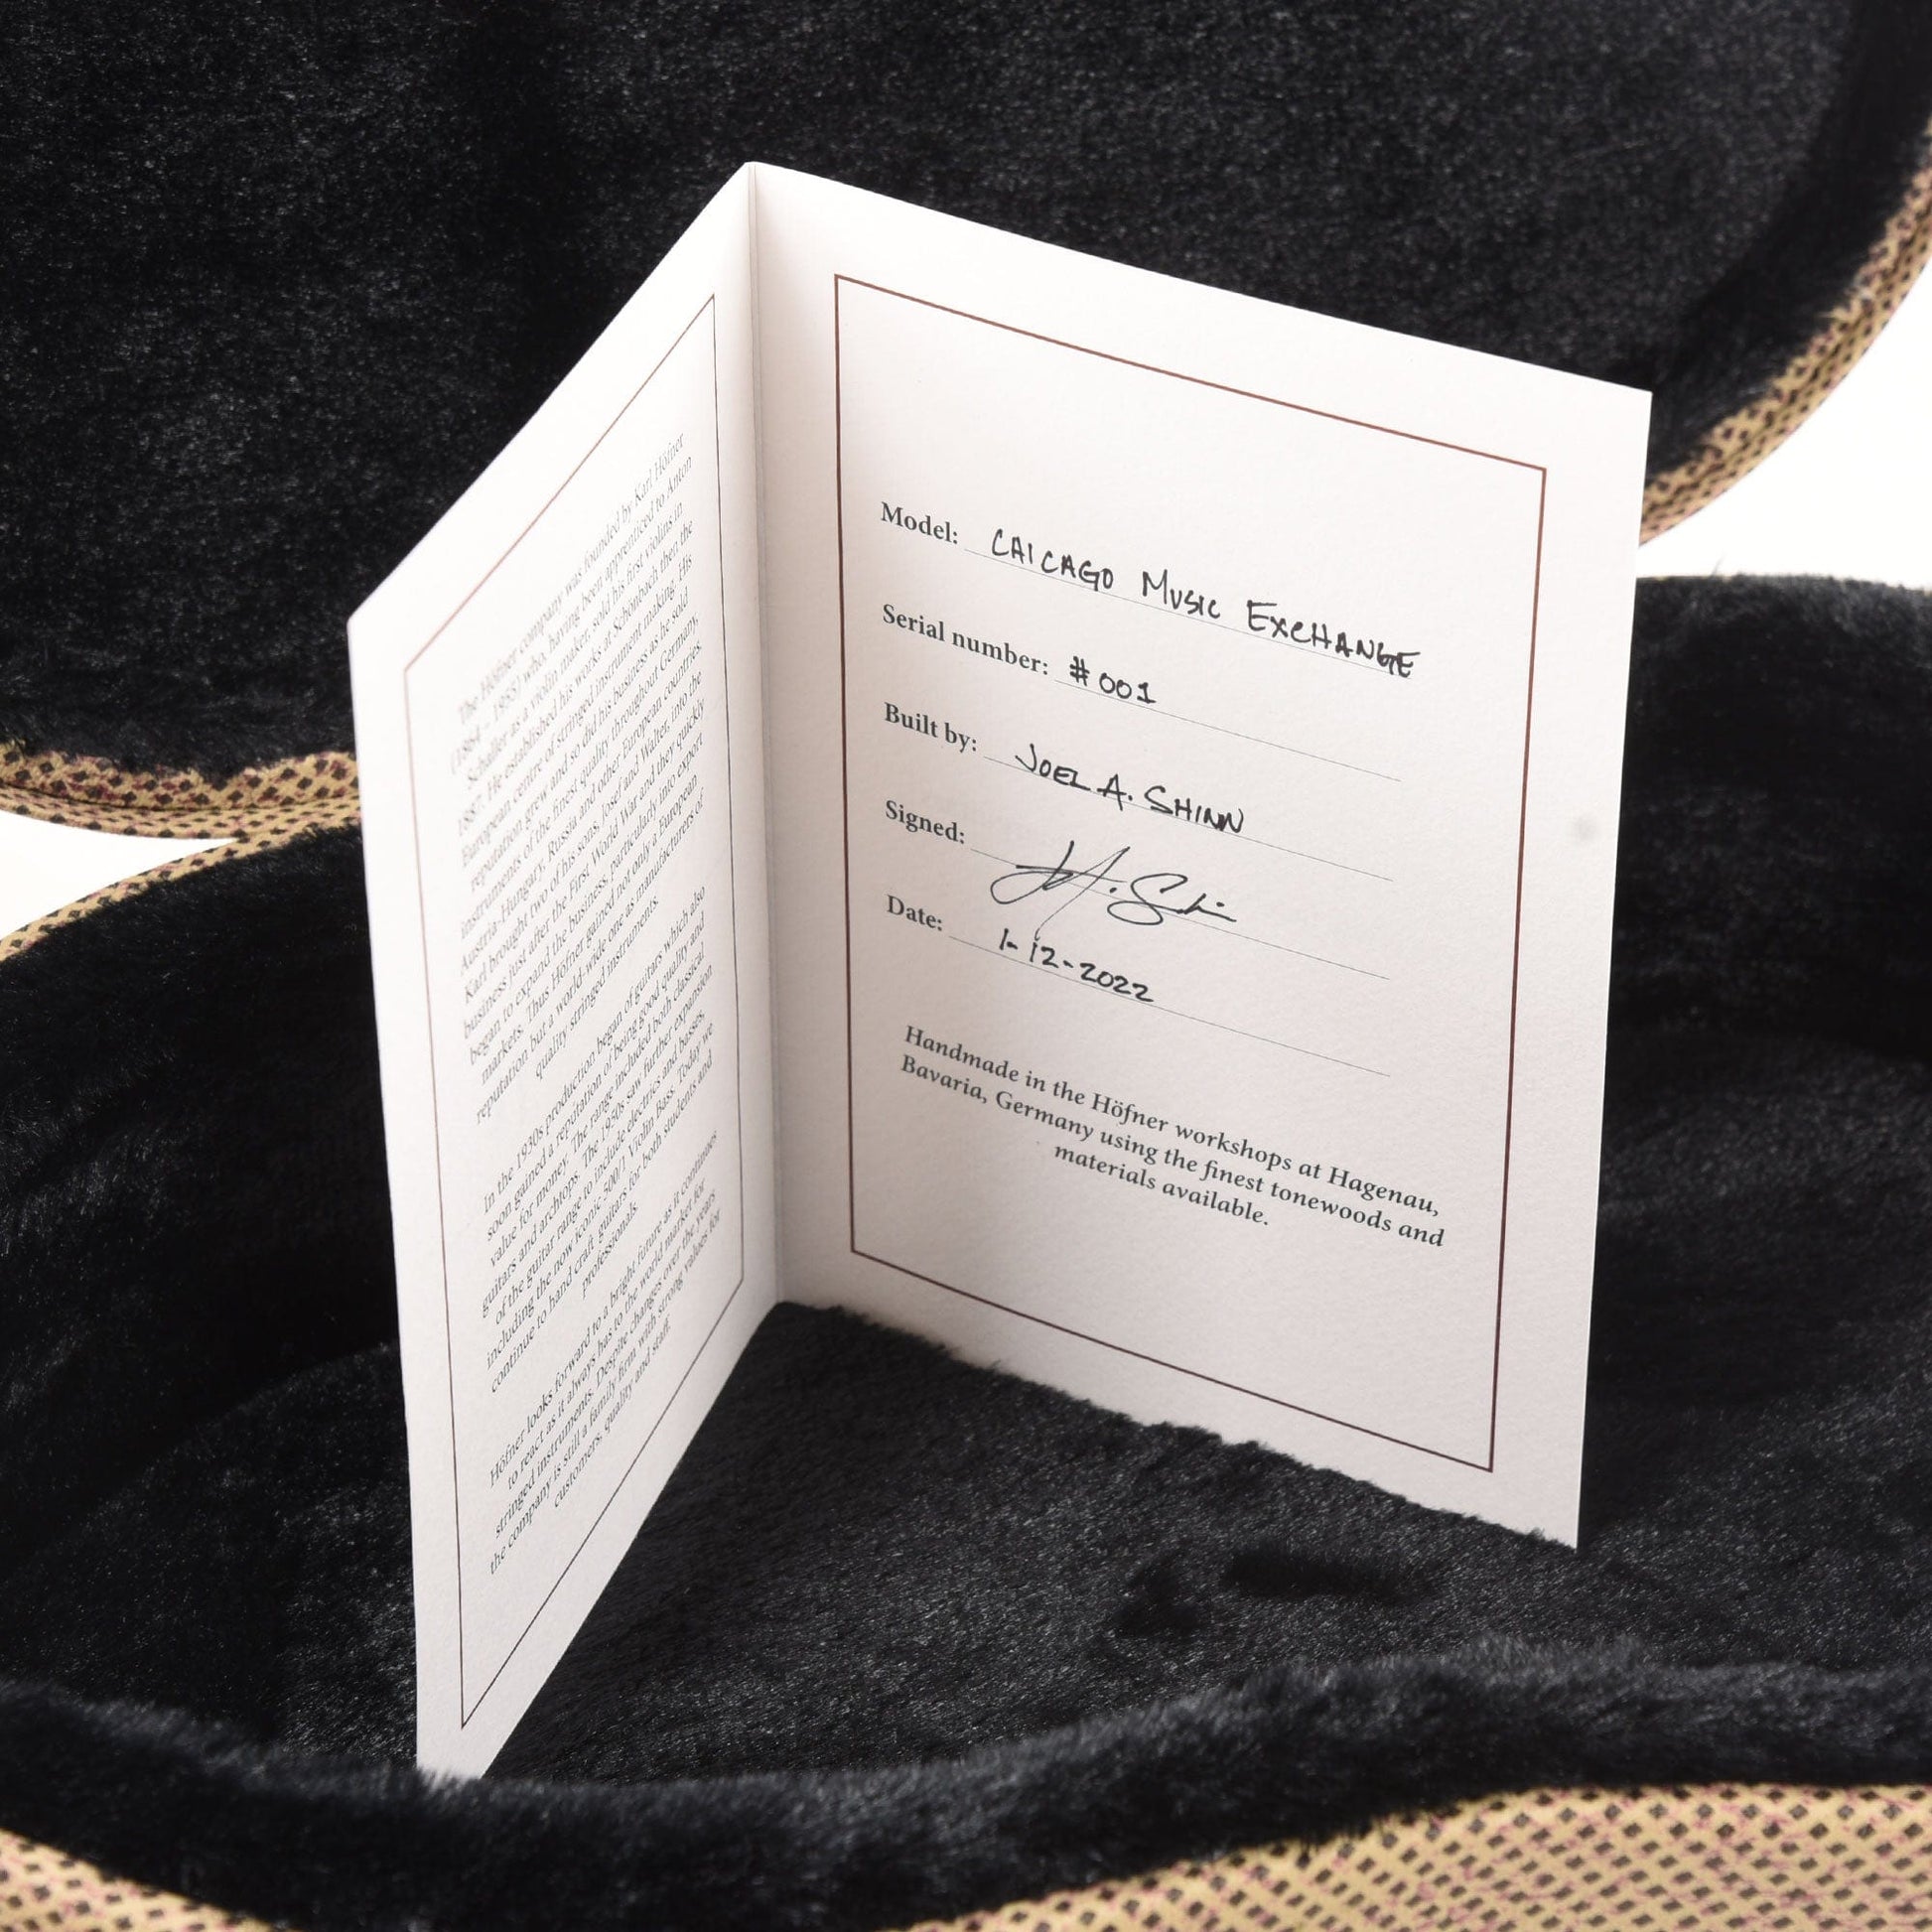 The Höfner company was founded by Karl Höfner
(1864 – 1955) who, having been apprenticed to Anton
Schaller as a violin maker, sold his first violins in
1887. He established his works at Schönbach then the
European centre of stringed instrument making. His
reputation grew and so did his business as he sold
instruments of the finest quality throughout Germany,
Austria-Hungary, Russia and other European countries.
Karl brought two of his sons, Josef and Walter, into the
business just after the First World War and they quickly
began to expand the business, particularly into export
markets. Thus Höfner gained not only a European
reputation but a world-wide one as manufacturers of
quality stringed instruments.
In the 1930s production began of guitars which also
soon gained a reputation of being good quality and
value for money. The range included both classical
guitars and archtops. The 1950s saw further expansion
of the guitar range to include electrics and basses,
including the now iconic 500/1 Violin Bass. Today we
continue to hand craft guitars for both students and
professionals.
Höfner looks forward to a bright future as it continues
to react as it always has to the world market for
stringed instruments. Despite changes over the years
the company is still a family firm with strong values for
customers, quality and staff.
Model: CHICAGO MUSIC EXCHANGE
Serial number: #001
Built by: JOEL A. SHINN
Signed:
Date: 1-12-2022
Handmade in the Höfner workshops at Hagenau,
Bavaria, Germany using the finest tonewoods and
materials available.